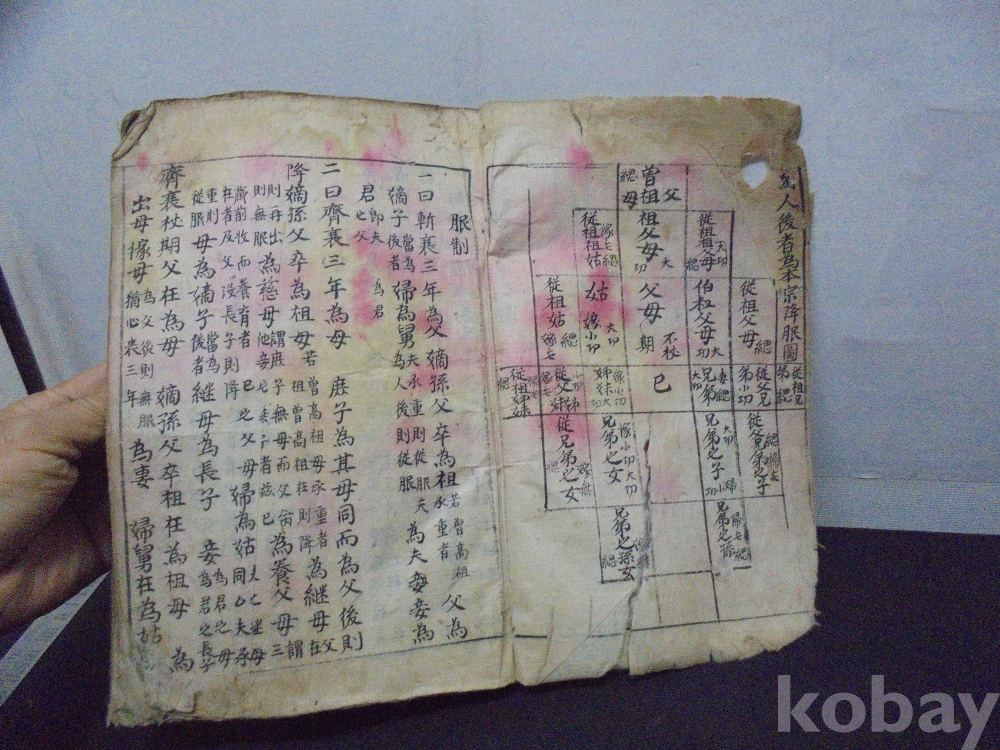 人後者為本宗降服圖
曾祖父母 緦
從祖祖父母 大功 緦
祖父母 大功
從祖祖姑 嫁七 緦
從祖父母 緦
伯叔父母 大功
父母 不杖期
姑 大功 嫁小功
從祖姑 緦 嫁七
從祖兄弟 緦
從父兄弟 小功
兄弟 大功
己
姊妹 大功 嫁小功
從父姊妹
從祖姊妹 緦
從父兄弟之子 緦
兄弟之子 大功
兄弟之女 大功 嫁小功
從兄弟之女 緦
兄弟之孫 緦
兄弟之孫女 緦
服制
一曰斬衰三年為父 嫡孫父卒為祖 若曾高祖承重者 父為
嫡子 當為後者 婦為舅 夫承重則從服 為人後則從服 為夫 妾為
君 即夫君之父 為君
二曰齊衰三年為母 庶子為其母同而為父後則
降 嫡孫父卒為祖母 若曾高祖母承重者 曾高祖在則降 為継母 父在
則再出則無服 為慈母 謂庶子無母而父命 為養父母 謂三
歲前收而養育者 在者及父沒長子則降 己之父母 婦為姑 夫承重則
從服 母為嫡子 當為後者 継母為長子 妾為君之長子
齊衰杖期父在為母 嫡孫父卒祖在為祖母 為
出母嫁母 為父後則無服 猶心喪三年 為妻 婦舅在為姑
kobay